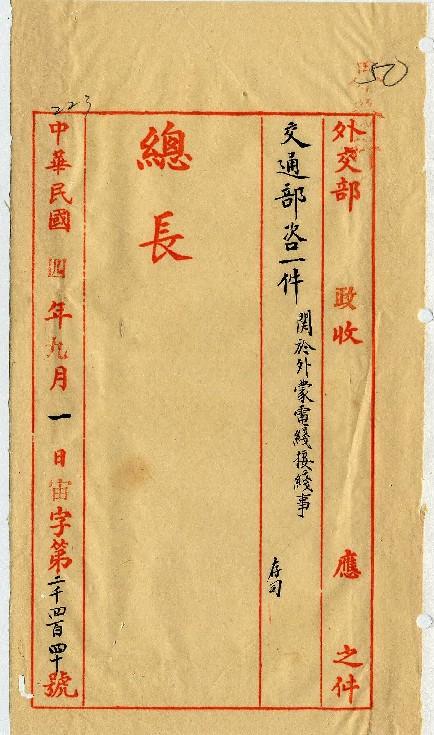 50
外交部 政收 應 之件
交通部咨一件 関於外蒙電綫接綫事 存司
總長
223
中華民國四年九月一日宙字第二千四百四十號